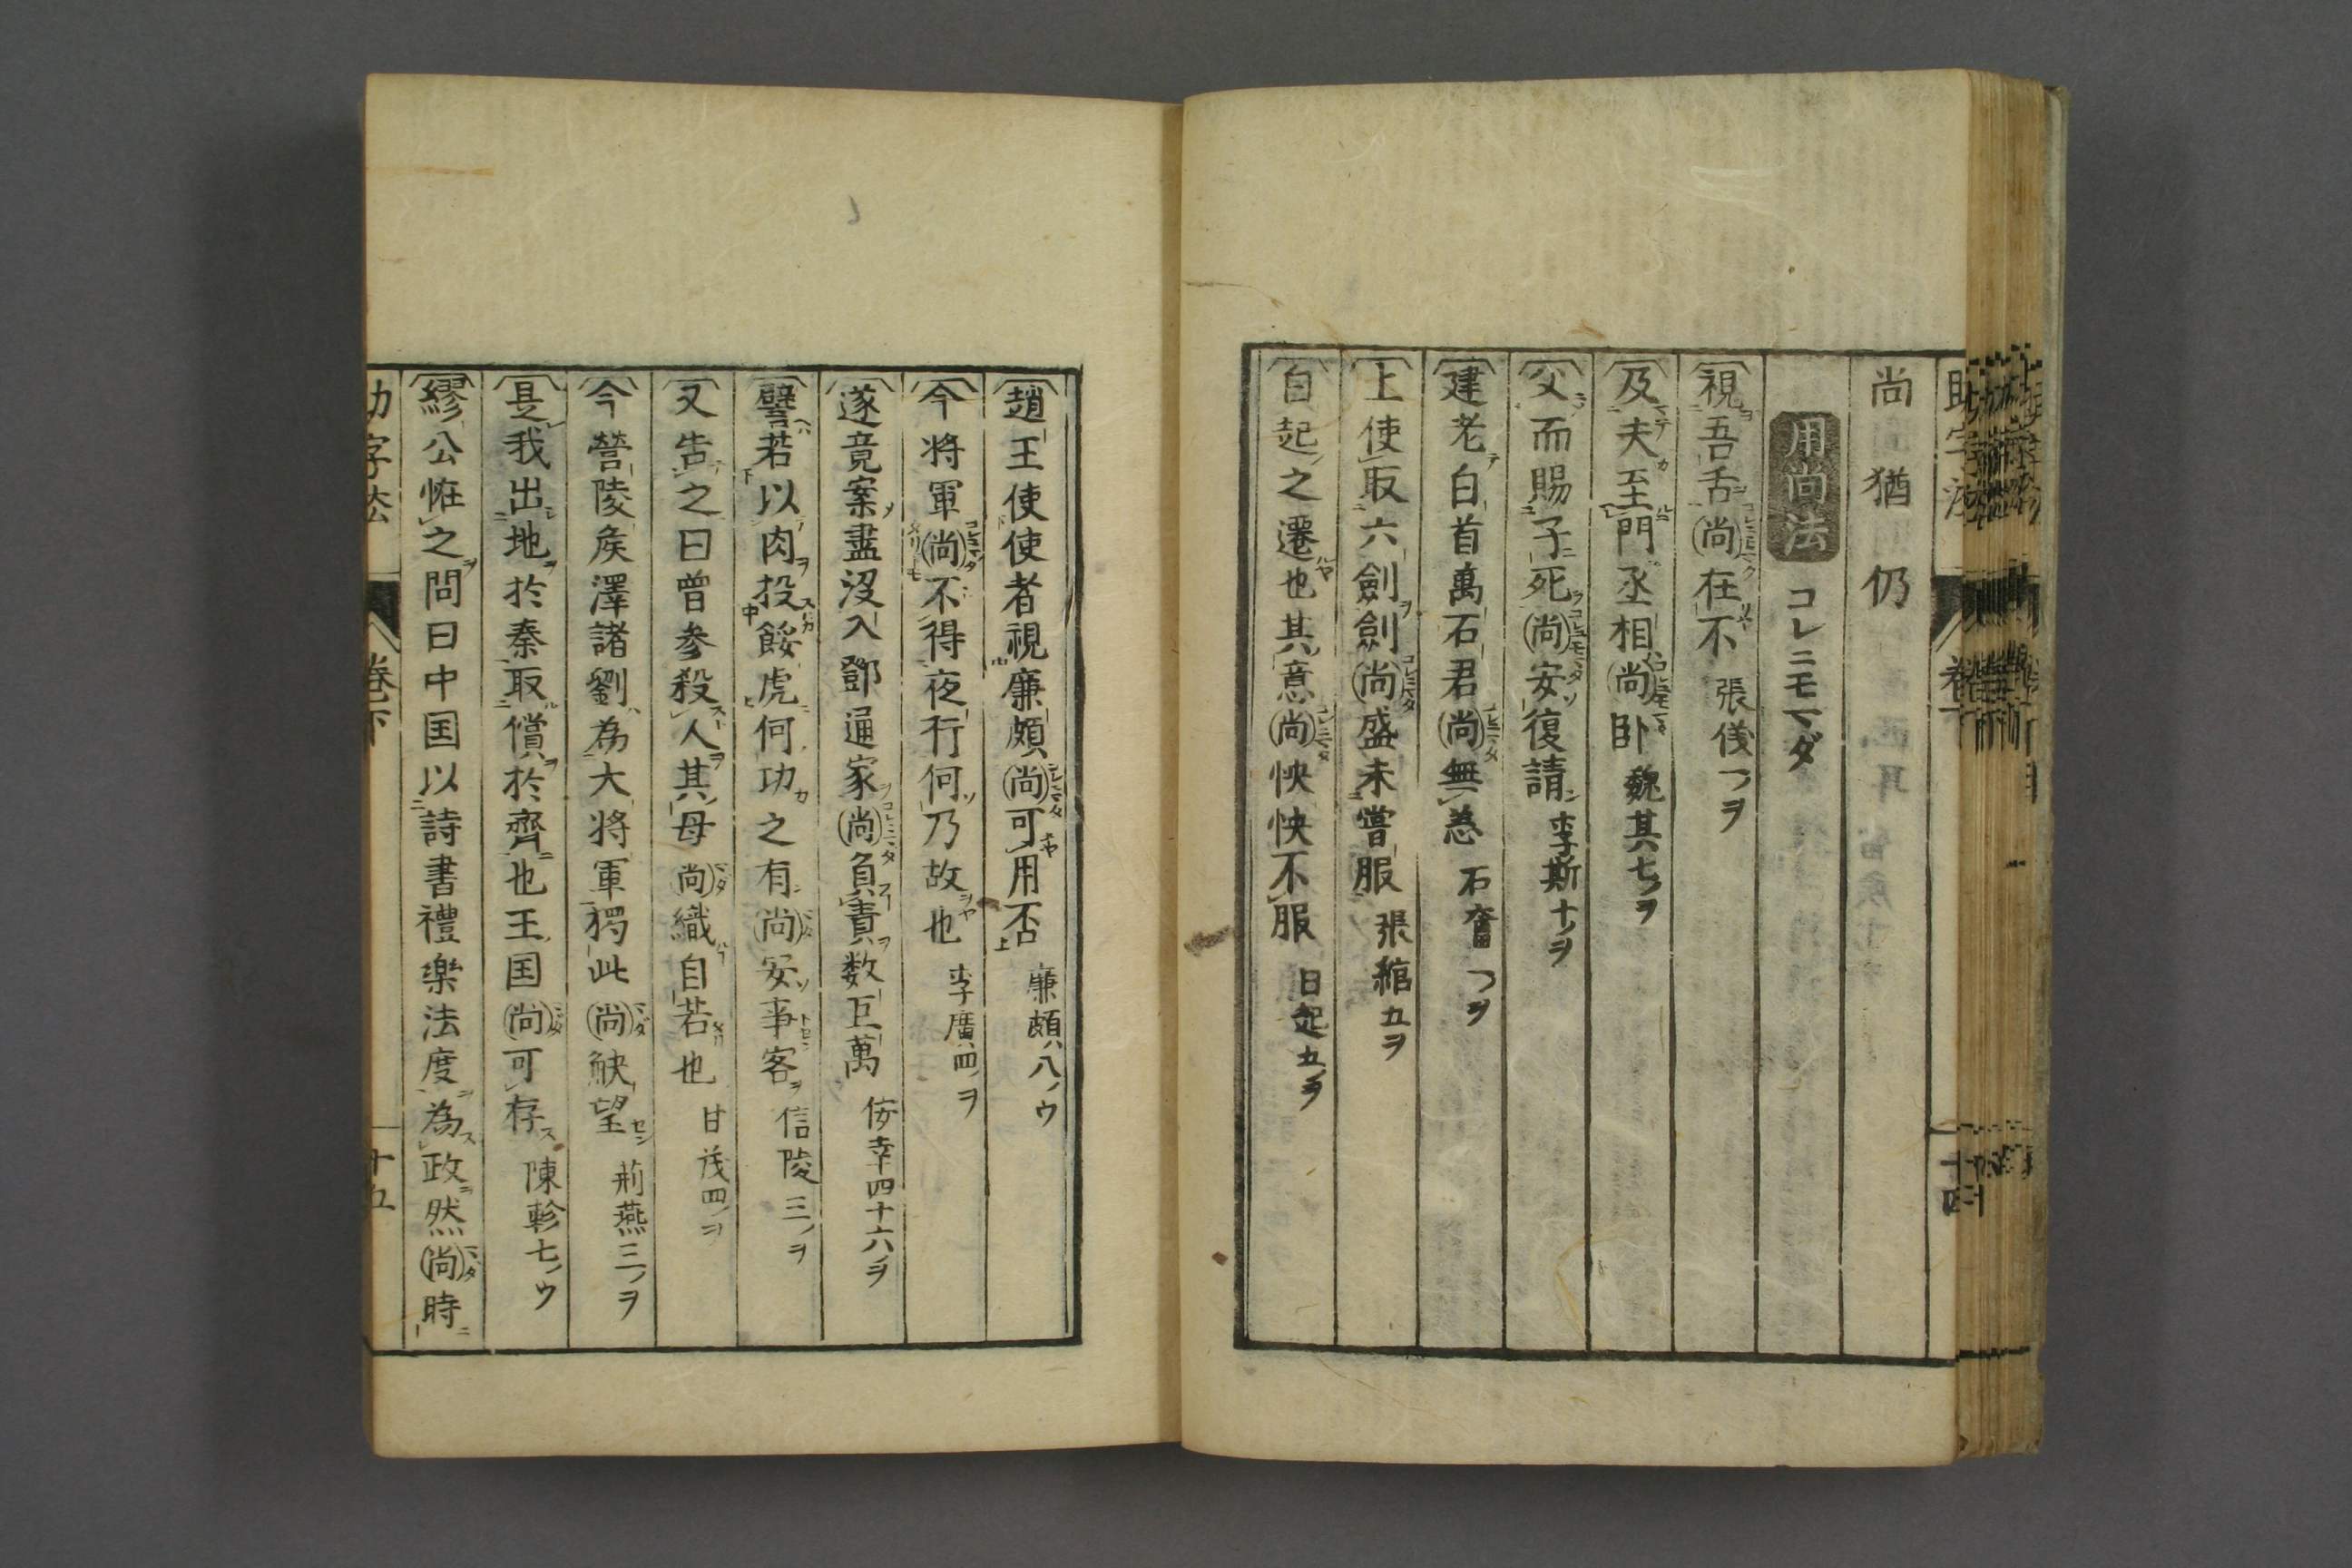 尚 猶 仍
用尚法 コレニモマダ
視吾舌尚在不 張儀
及夫至門丞相尚臥 魏其七ノヲ
父而賜子死尚安復請 李斯十ノヲ
建老白首萬石君尚無恙 石奮
上使取六劍劍尚盛未嘗服 張綰五ヲ
白起之遷也其意尚怏怏不服 白起五ノヲ
趙王使使者視廉頗尚可用否 廉頗八ノウ
今将軍尚不得夜行何乃故也 李廣四ノヲ
遂竟案盡没入鄧通家尚負責数巨萬 佞幸四十六ノヲ
譬若以肉投餒虎何功之有尚安事客 信陵三ノヲ
又告之曰曾参殺人其母尚織自若也 甘茂四ノヲ
今營陵矦澤諸劉為大将軍獨此尚觖望 荊燕三ノヲ
是我出地於秦取償於齊也王国尚可存 陳軫七ノウ
繆公恠之問曰中国以詩書禮樂法度為政然尚時
助字法 卷下 十五